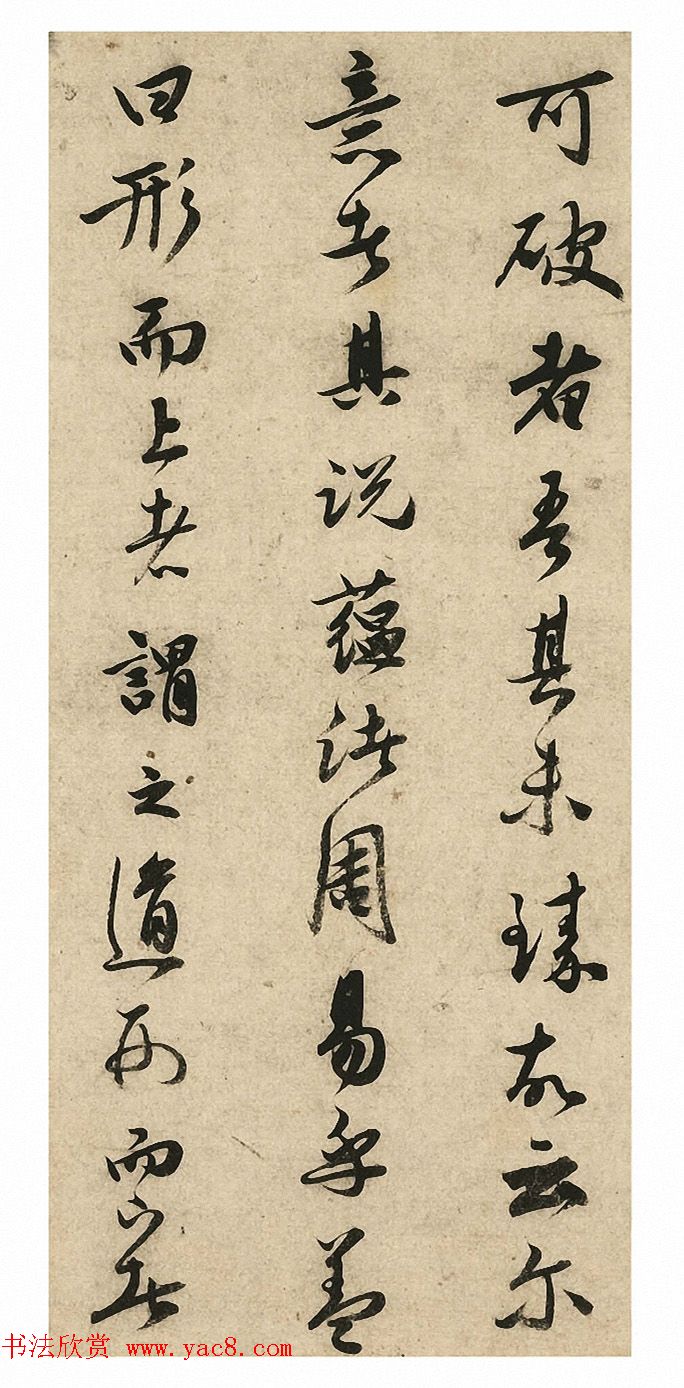 可破者吾其未臻故云尔
意者其说蕴诸周易乎盖
曰形而上者謂之道形而下者
书法欣赏 www.yac8.com